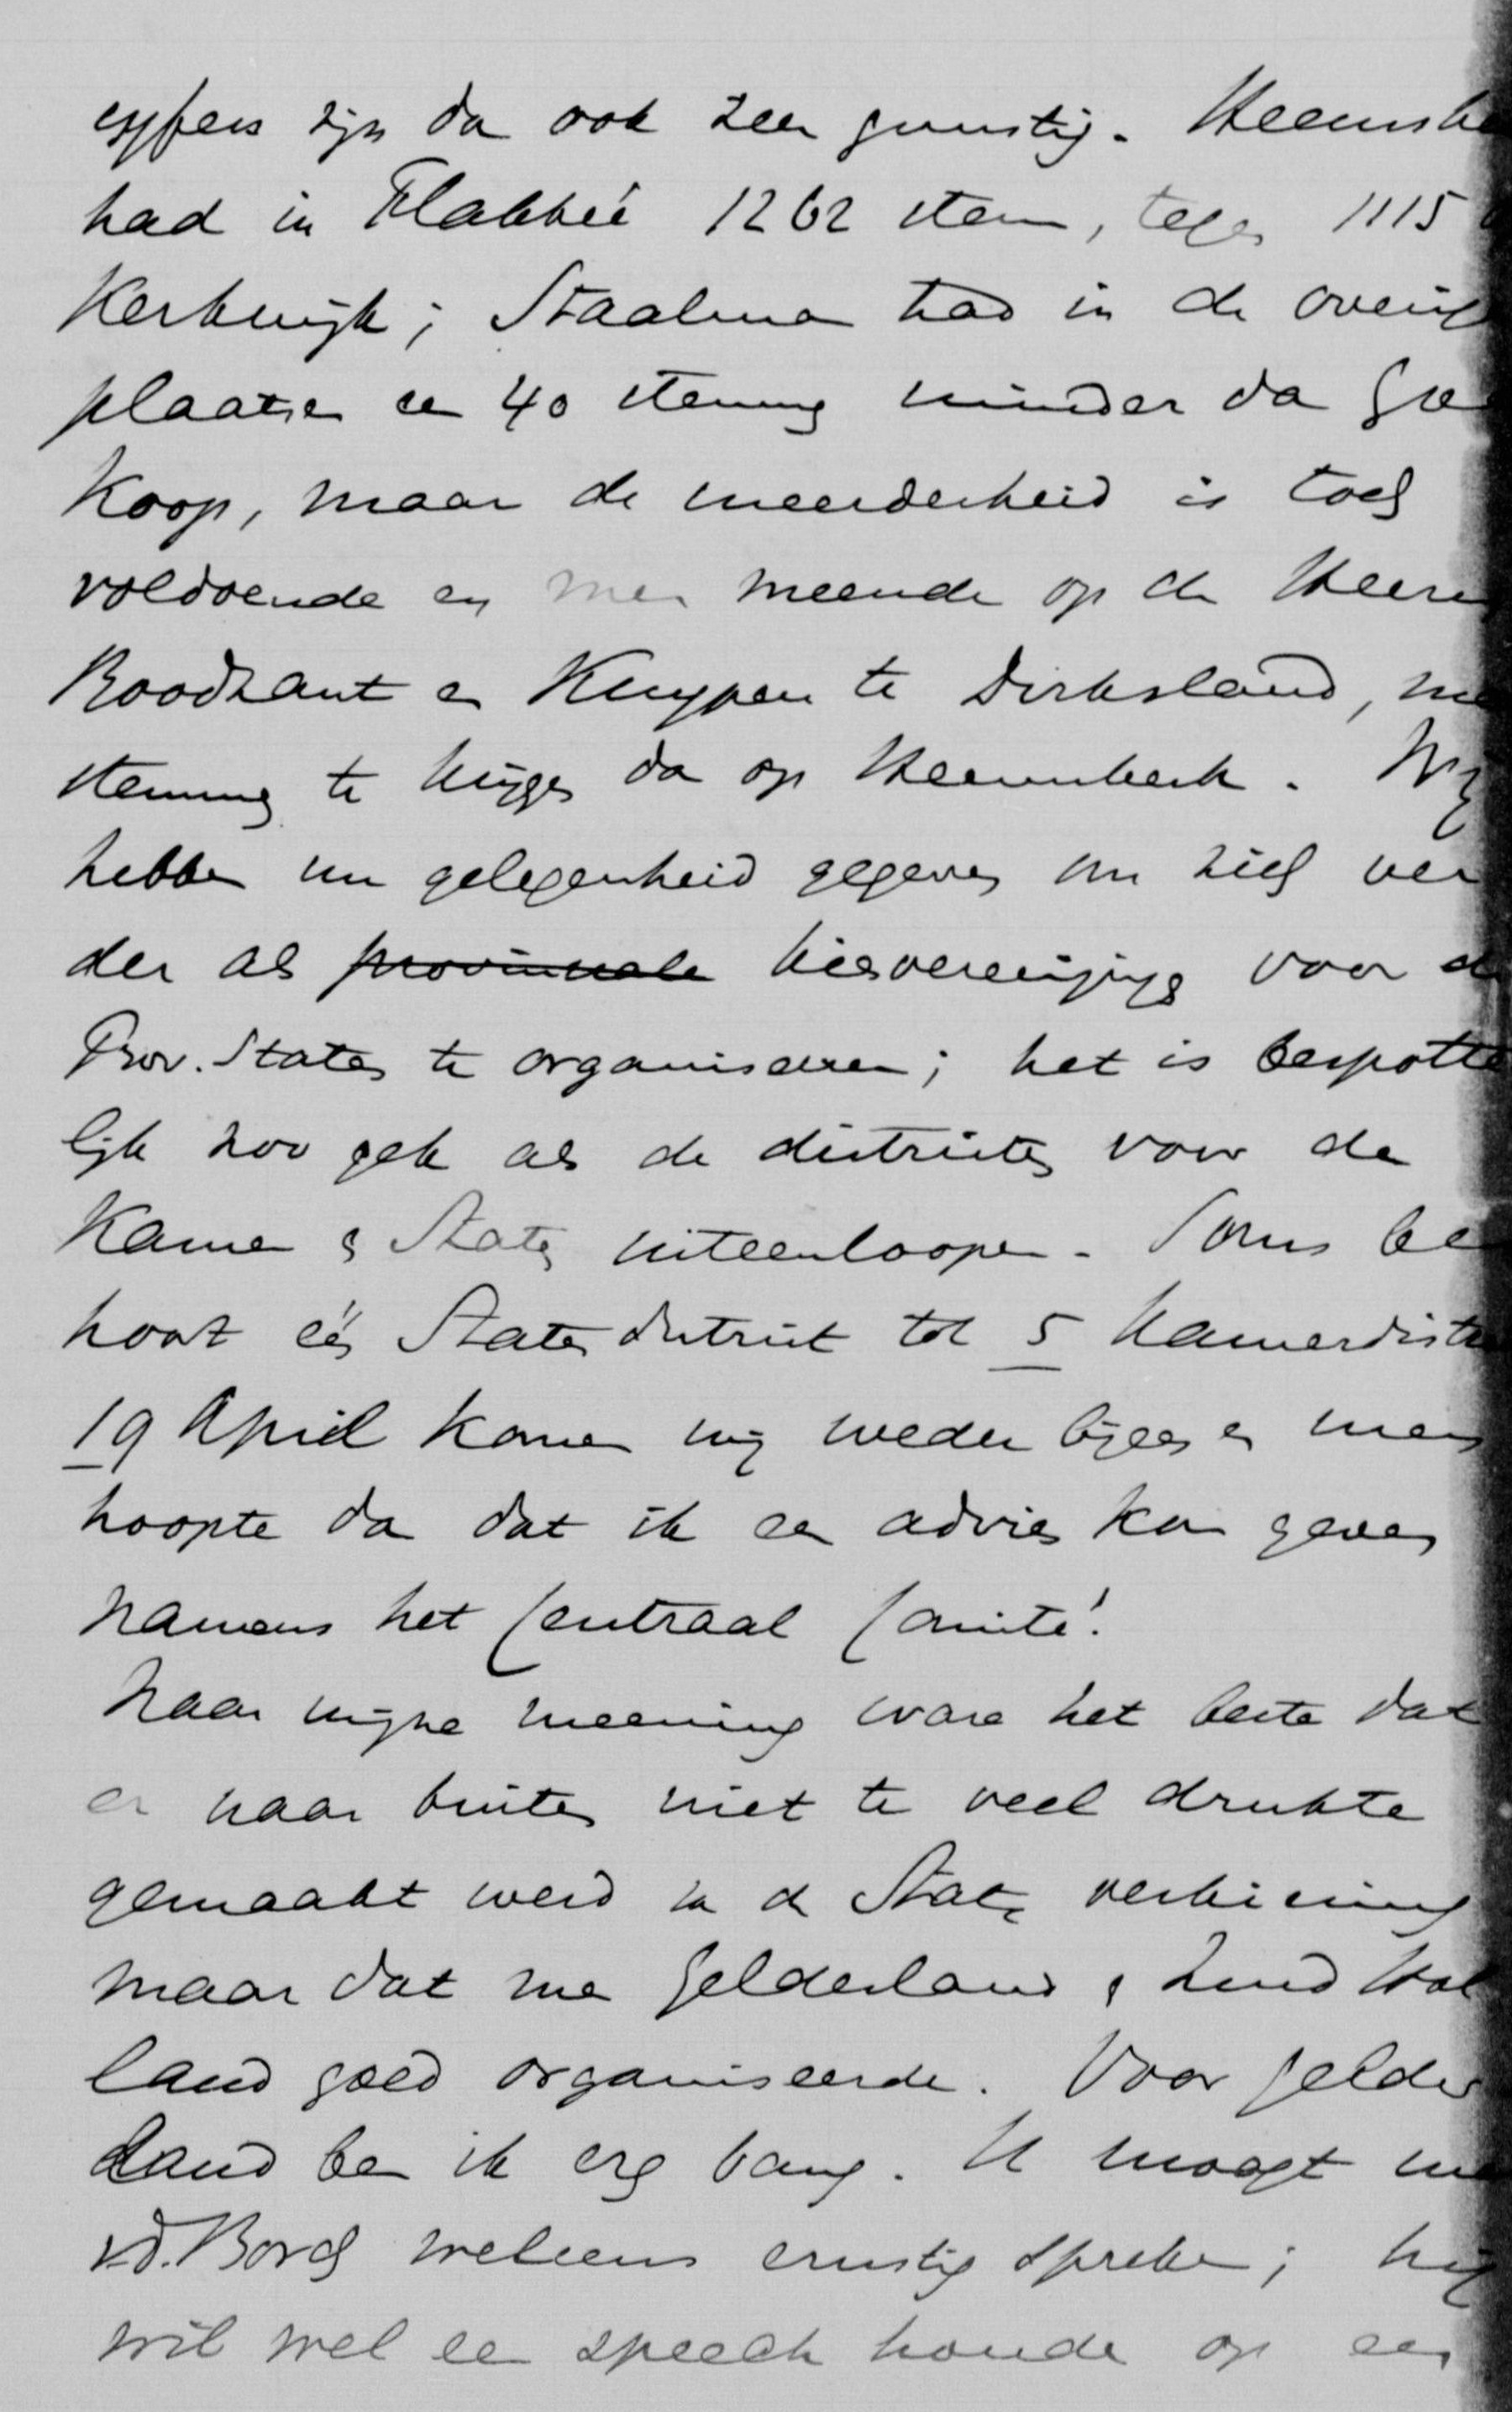 cyfers zijn dan ook zeer gunstig. Heemske
had in Flakkeé 1262 stem, tegen 1115
Kerkwijk; Staalman had in de overig
plaatsen een 40 stemming minder dan Goe
Koop, maar de meerderheid is toch
voldoende en men meende op de Heeren
Roodzant en Kuyper te Dirksland, me
stemming te krijgen dan op Heemskerk. Wij
hebben nu gelegenheid gegeven om zich ver
der als provinciale kiesvereenigings voor de
Prov. Staten te organiseeren; het is bespotte
lijk zoo gek als de districten voor de
Kamer en Staten uiteenloopen. Soms be
hoort één Staten district tot 5 Kamerdistr
19 April komen wij weder bijeen en men
hoopte dan dat ik een advies kon geven
namens het Centraal Comité!
Naar mijne meening ware het beste dat
er naar buiten niet te veel drukte
gemaakt werd in de Staten verkiezing
maar dat men Gelderland en Zuid Hol
land goed organiseerde. Voor Gelder
land ben ik erg bang. U moogt me
v.d. Borch weleens ernstig spreken; hij
wil wel een speech houden op een